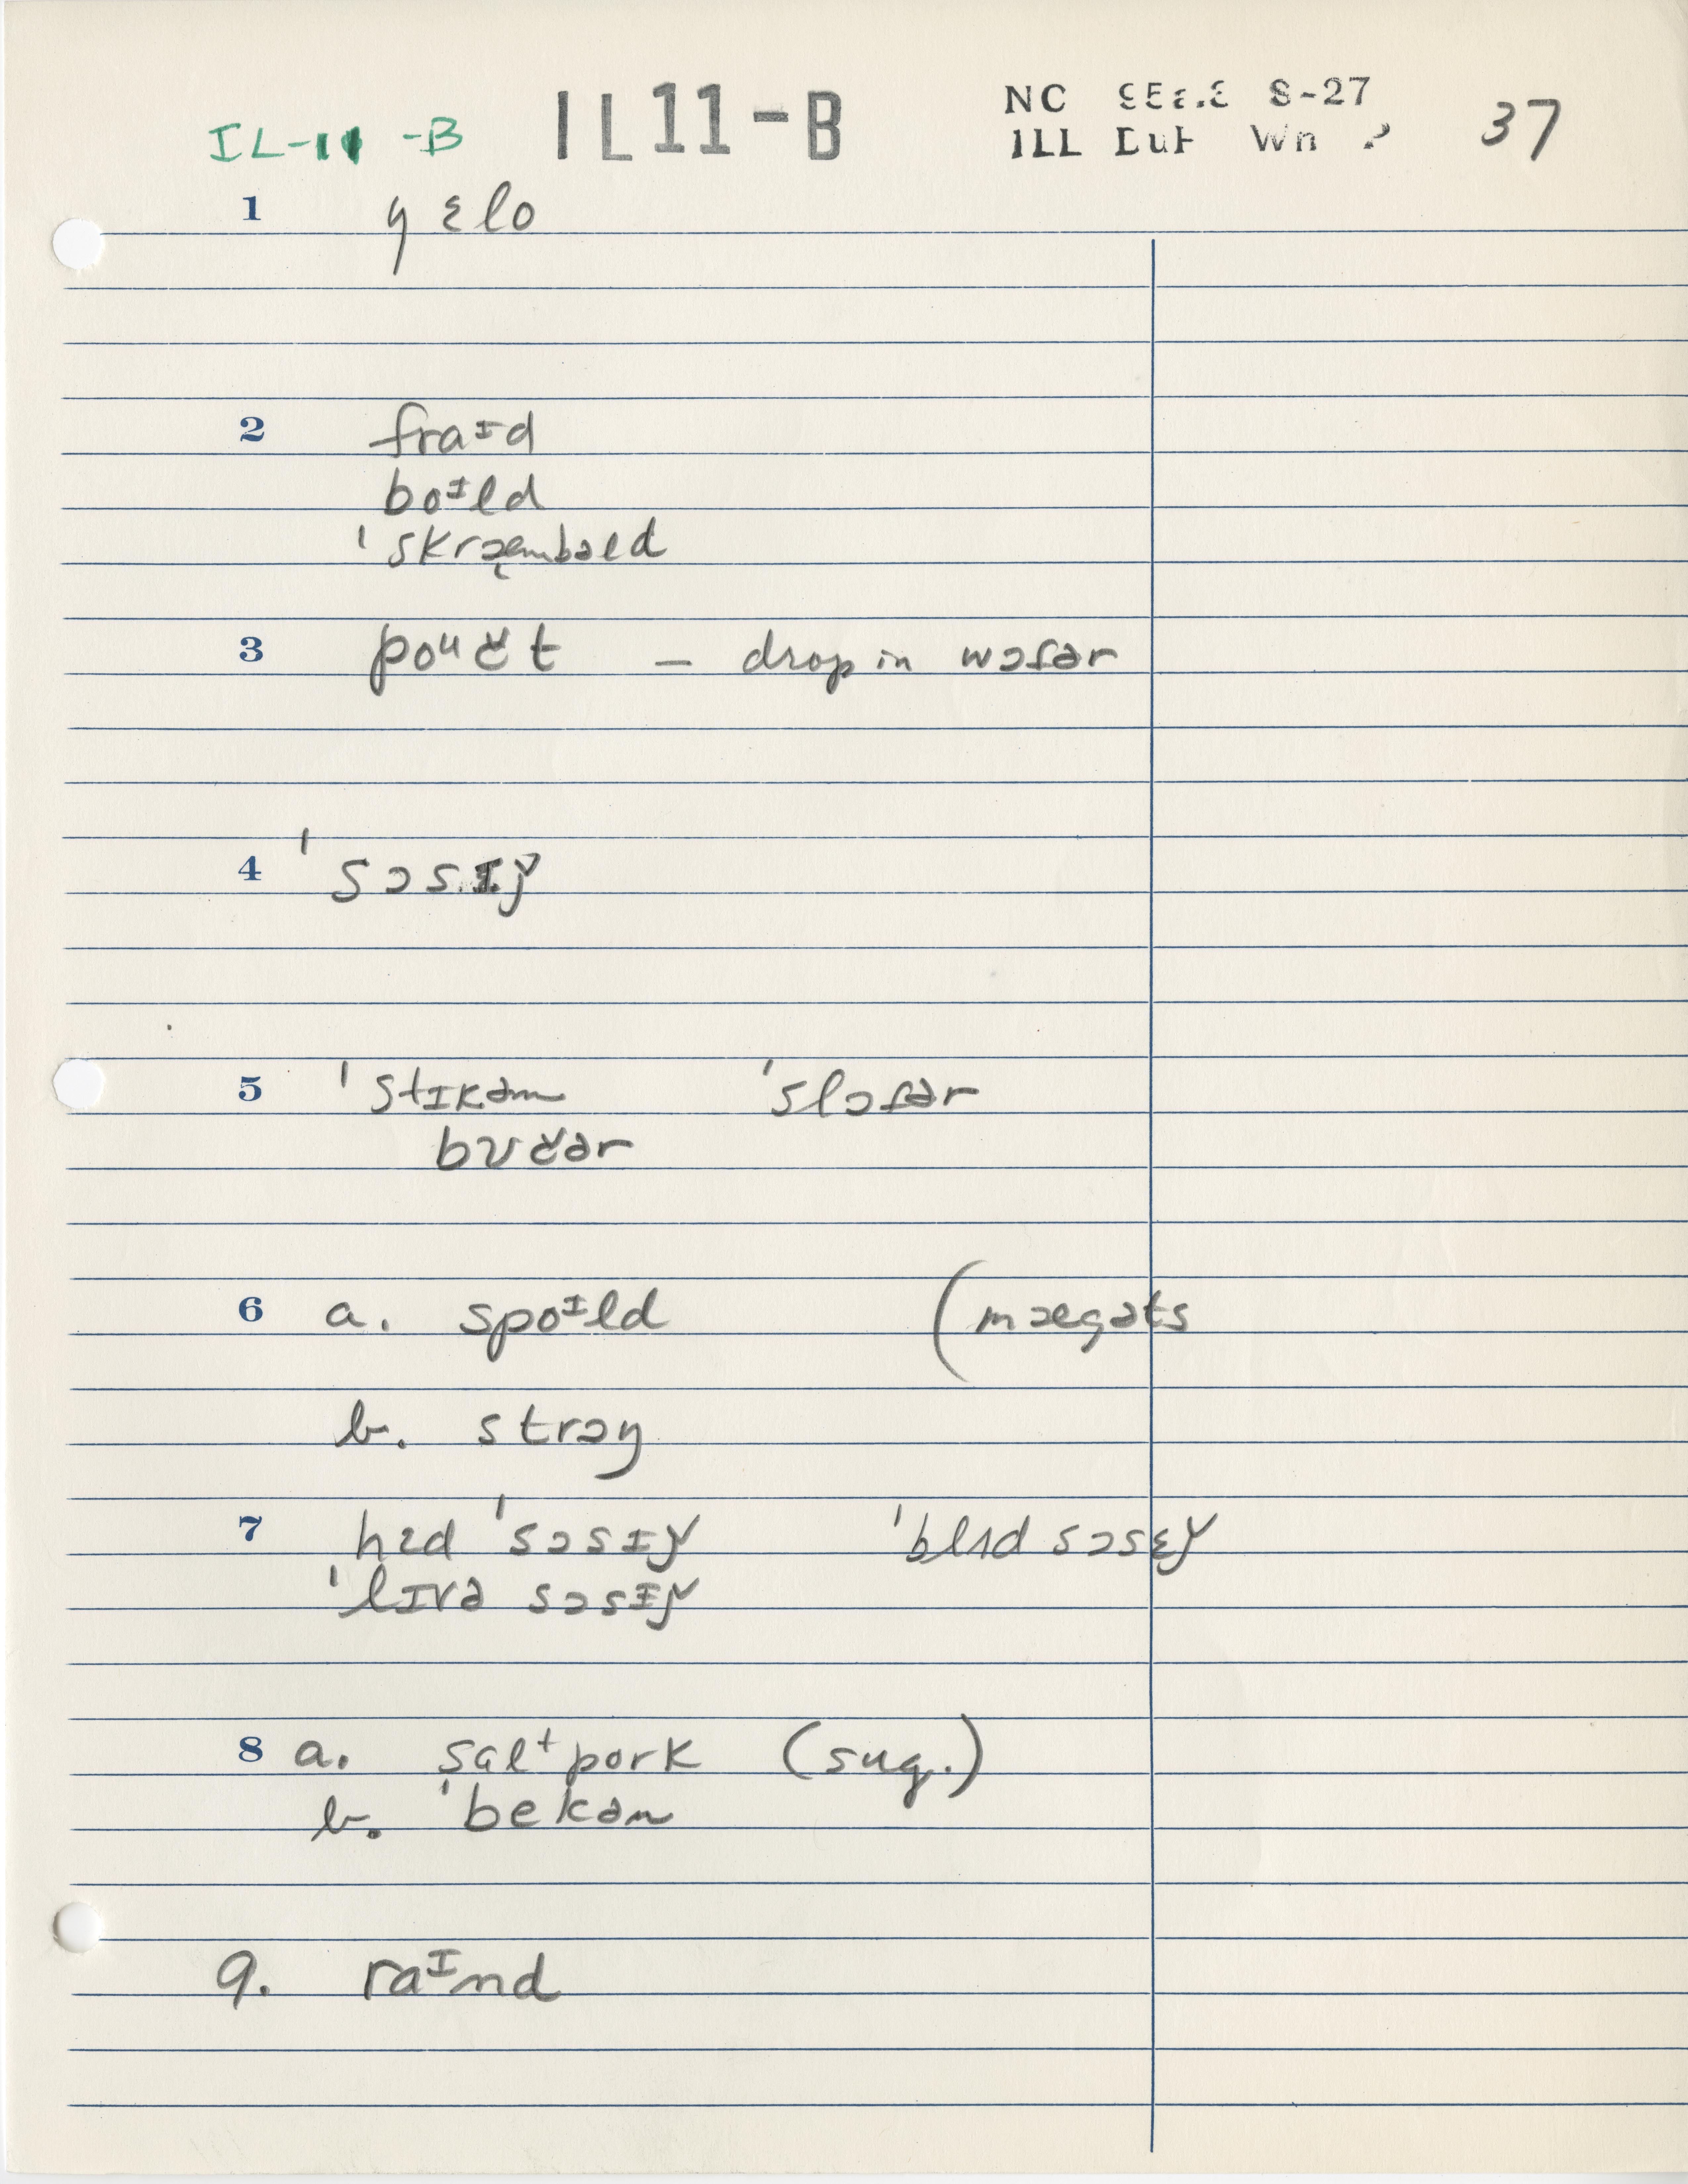 IL-11 -B IL11-B NC S-27
ILL DuP Wn 37
1 yɛlo
2 fraɪd
boᶦld
ˈskræmbəld
3 poᵘčt – drop in wɔtər
4 ˈsɔsɪǰ
5 ˈstɪkəm ˈslɔtər
bʊčər
6 a. spoᶦld (mægəts
b. strɔy
7 hɛd ˈsɔsɪǰ ˈblʌd sɔsɛǰ
ˈlɪvə sɔsɪǰ
8 a. salt pork (sug.)
b. ˈbekən
9. raᶦnd